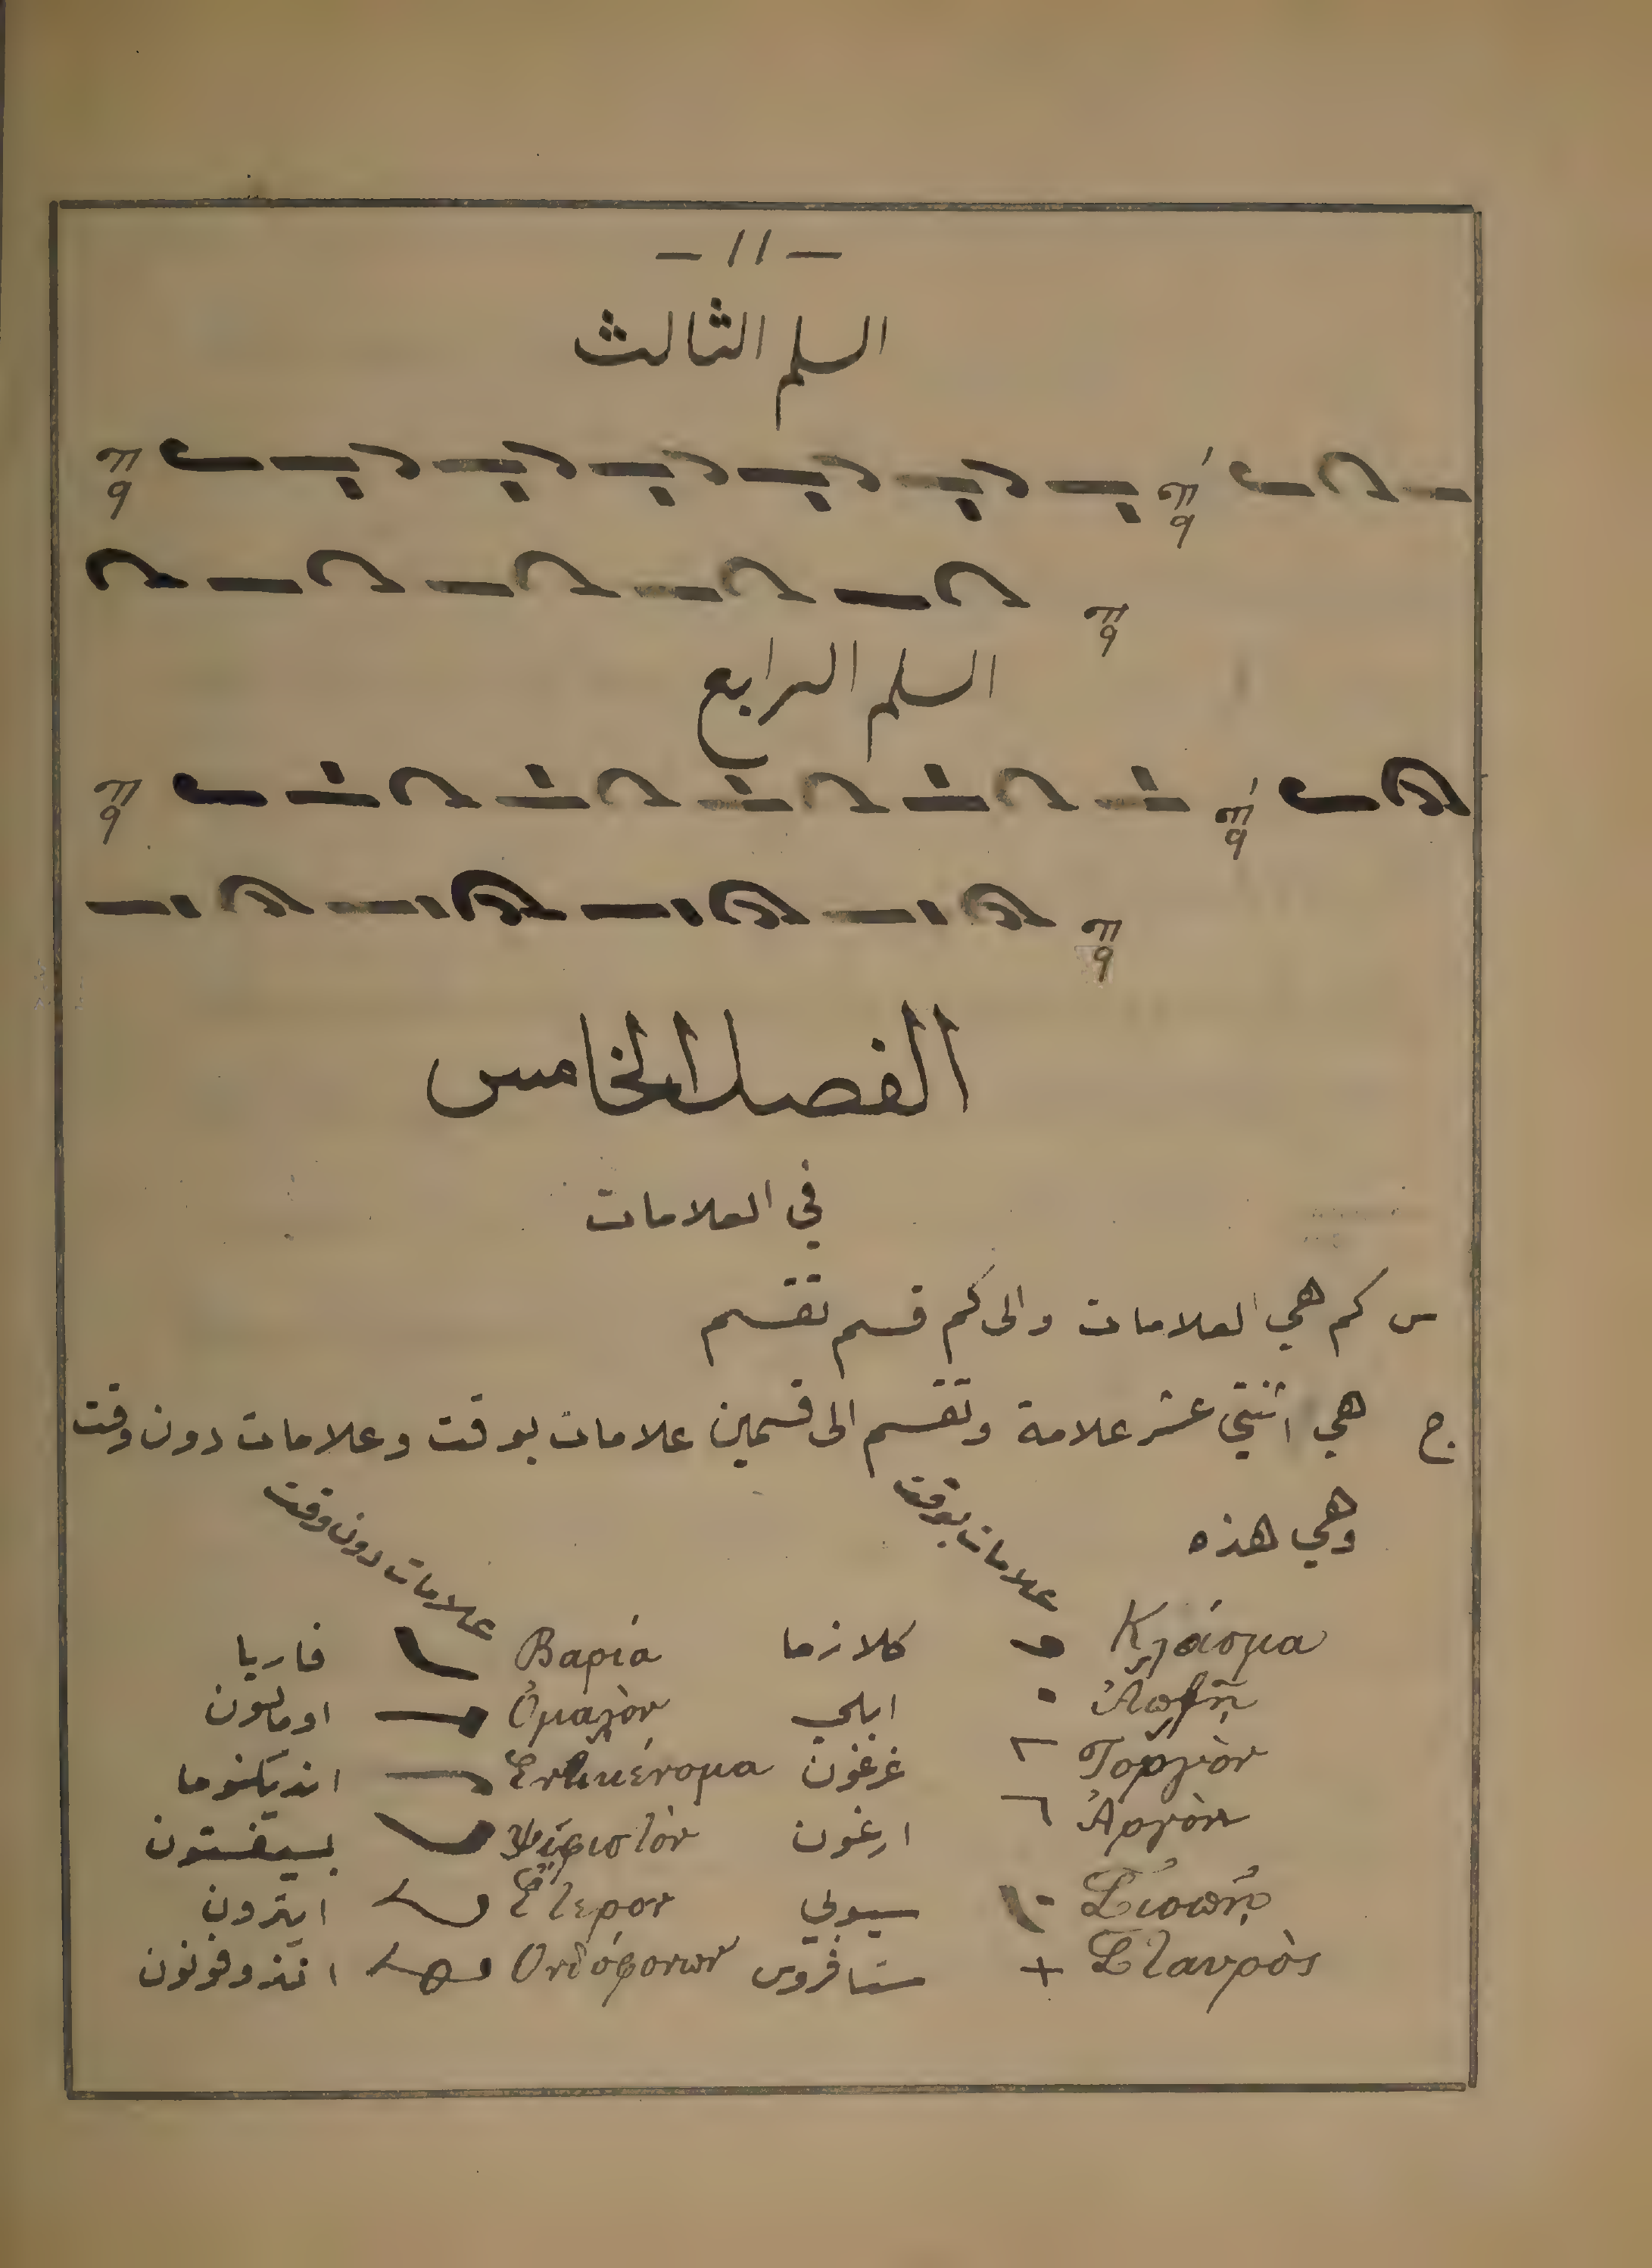 — ١١ —
السلم الثالث
السلم الرابع
الفصل الخامس
في العلامات
س كم هي العلامات والى كم قسم تقسم
ج هي اثنتي عشر علامة وتقسم الى قسمين علامات بوقت وعلامات دون وقت
وهي هذه
علامات بوقت علامات دون وقت
Κλάσμα كلازما Βαρία فاريا
Ἁπλῆ ابلي Ὁμαλὸν اومالون
Γοργὸν غرغون انديكنوما
Ἀργὸν ارغون Ψηφιστὸν بسيفستون
Σιωπὴ سيوبي Ἕτερον ايترون
Σταυρὸς ستافروس انذوفونون